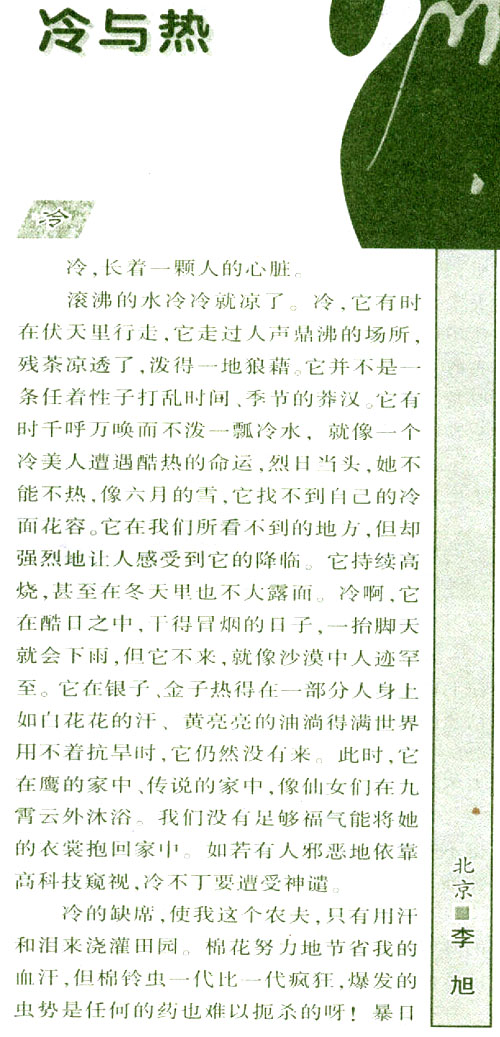 冷与热
冷
冷,长着一颗人的心脏。
滚沸的水冷冷就凉了。冷,它有时
在伏天里行走,它走过人声鼎沸的场所,
残茶凉透了,泼得一地狼藉。它并不是一
条任着性子打乱时间、季节的莽汉。它有
时千呼万唤而不泼一瓢冷水, 就像一个
冷美人遭遇酷热的命运,烈日当头,她不
能不热,像六月的雪,它找不到自己的冷
面花容。它在我们所看不到的地方,但却
强烈地让人感受到它的降临。它持续高
烧,甚至在冬天里也不大露面。冷啊,它
在酷日之中,干得冒烟的日子,一抬脚天
就会下雨,但它不来,就像沙漠中人迹罕
至。它在银子、金子热得在一部分人身上
如白花花的汗、黄亮亮的油淌得满世界
用不着抗旱时,它仍然没有来。此时,它
在鹰的家中、传说的家中,像仙女们在九
霄云外沐浴。我们没有足够福气能将她
的衣裳抱回家中。如若有人邪恶地依靠
高科技窥视,冷不丁要遭受神谴。
冷的缺席,使我这个农夫,只有用汗
和泪来浇灌田园。棉花努力地节省我的
血汗,但棉铃虫一代比一代疯狂,爆发的
虫势是任何的药也难以扼杀的呀!暴日
北京■李旭